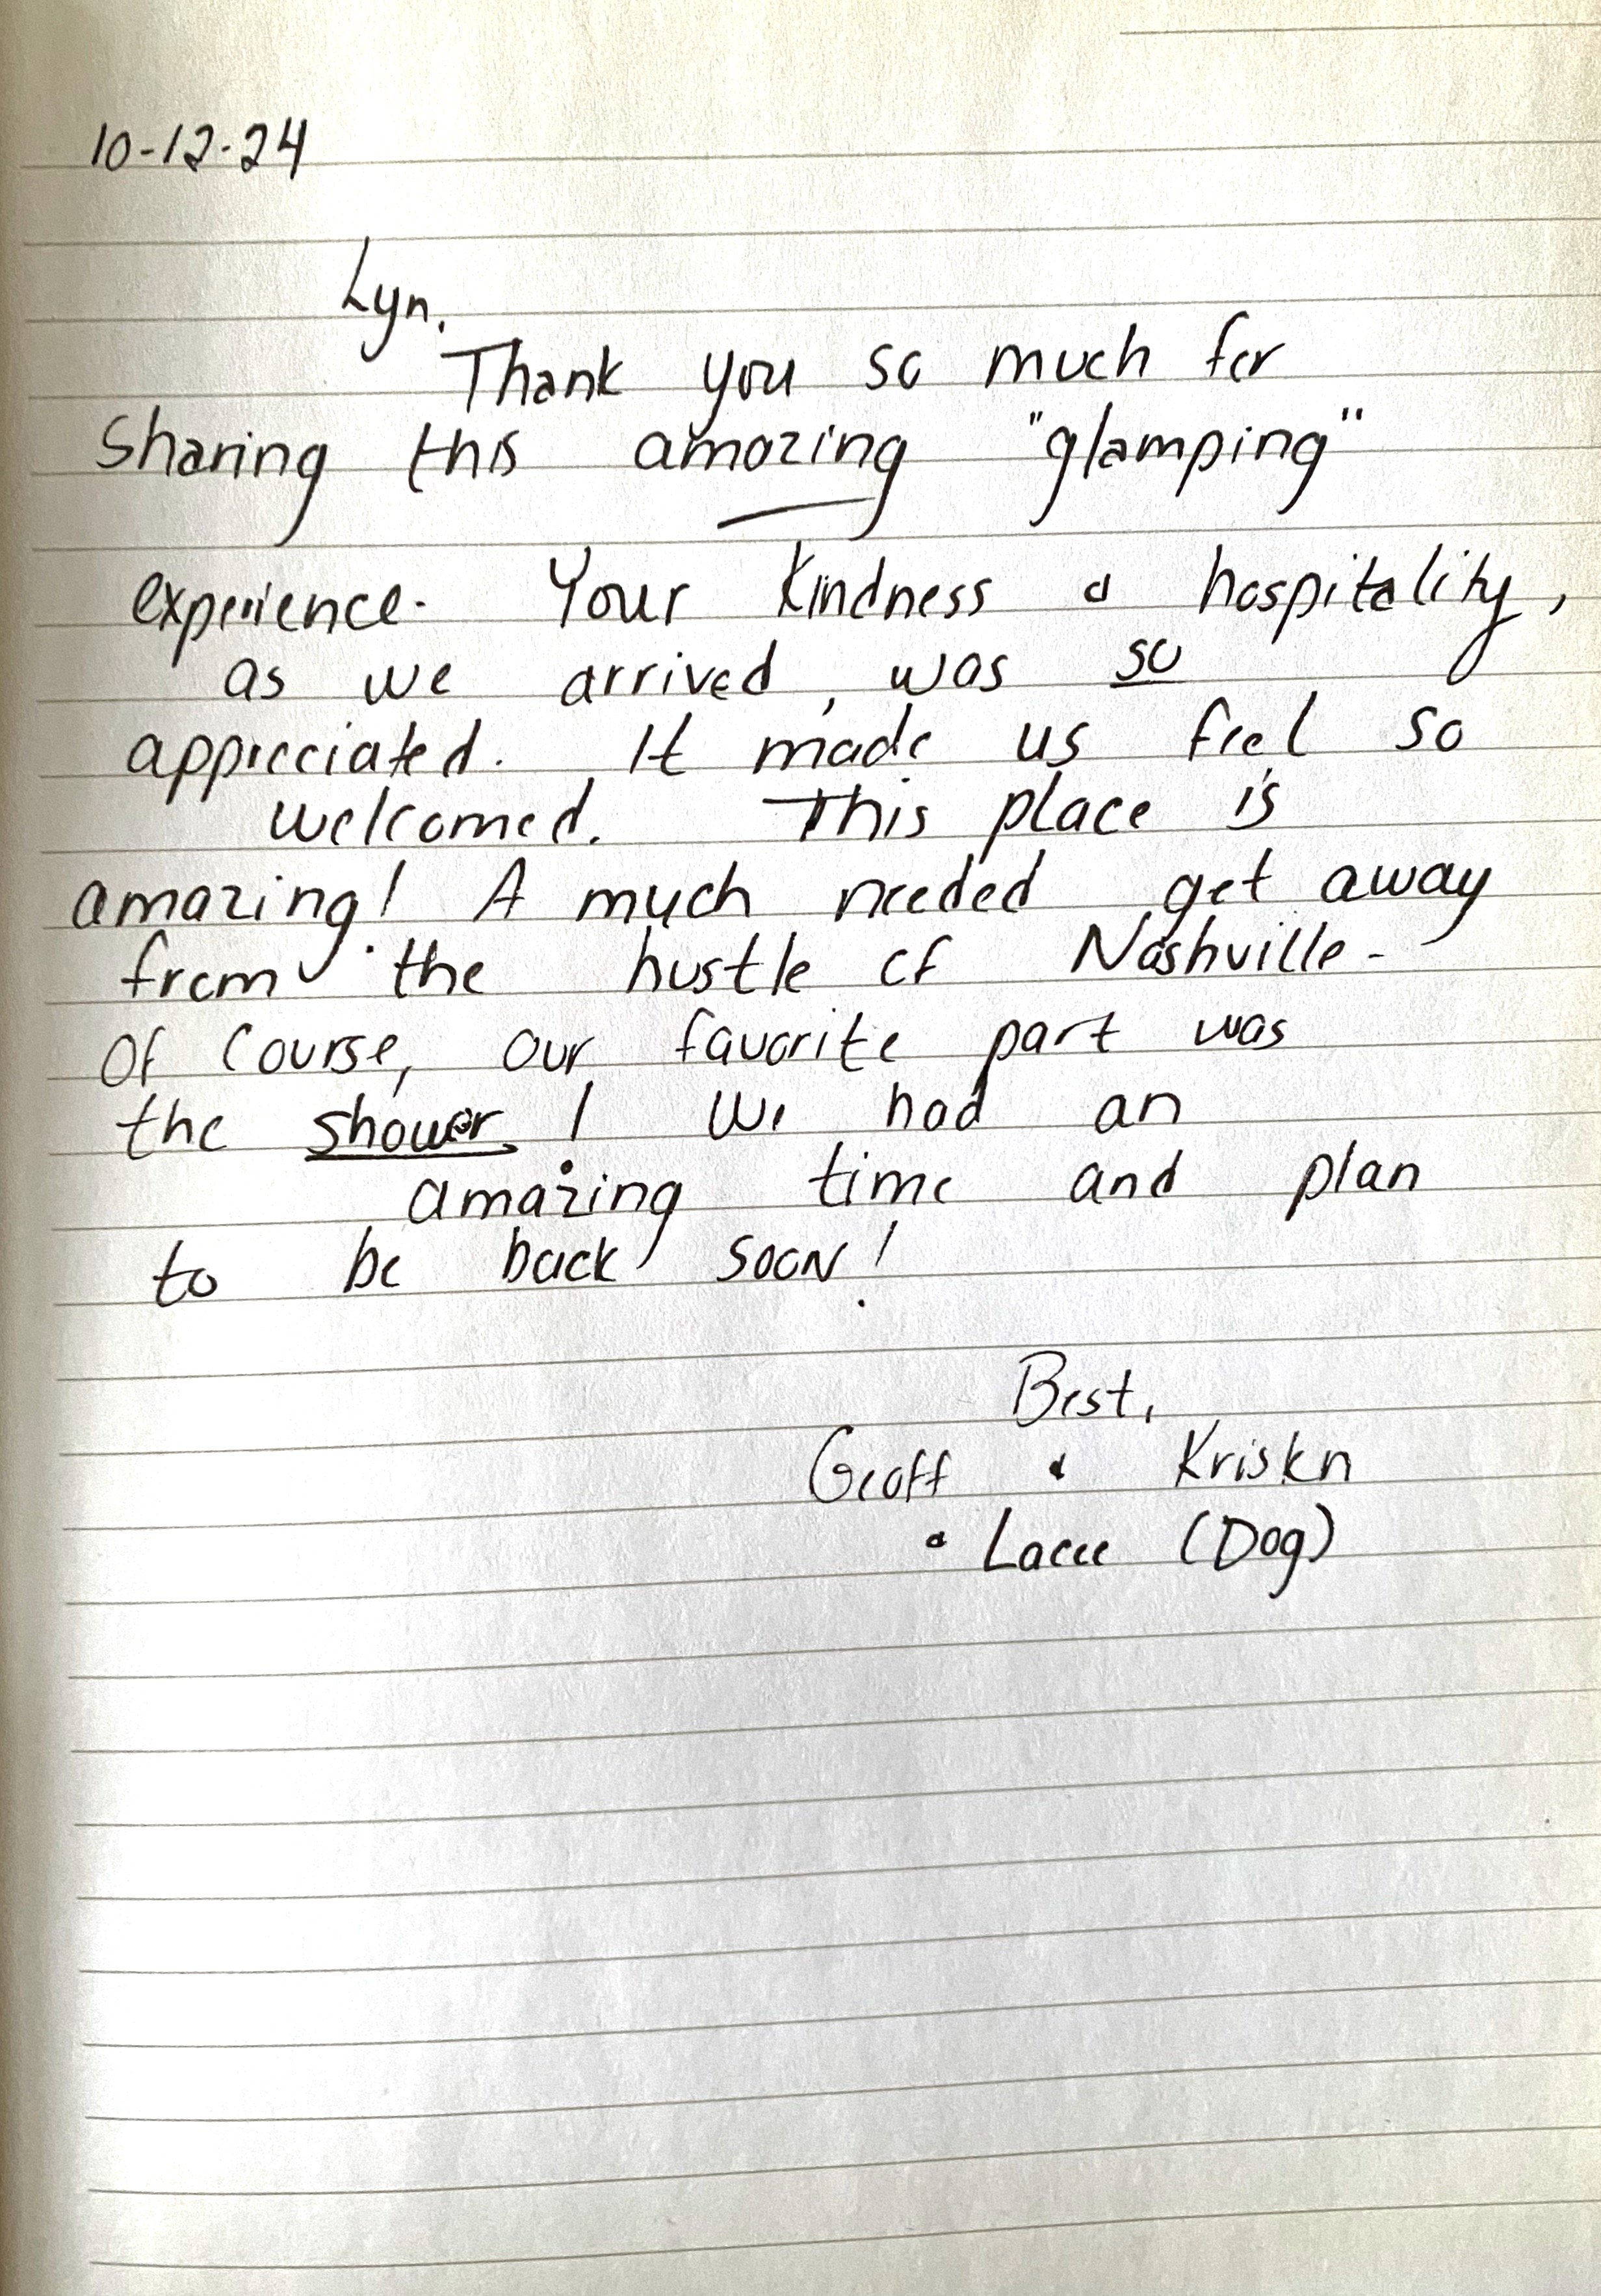 10-12-24
Lyn,
Thank you so much for
Sharing this amazing "glamping"
experience. Your kindness & hospitality,
as we arrived, was so
appreciated. It made us feel so
welcomed. This place is
amazing! A much needed get away
from the hustle of Nashville-
Of Course, our favorite part was
the shower! We had an
amazing time and plan
to be back soon!
Best,
Geoff & Kristen
& Lacee (Dog)